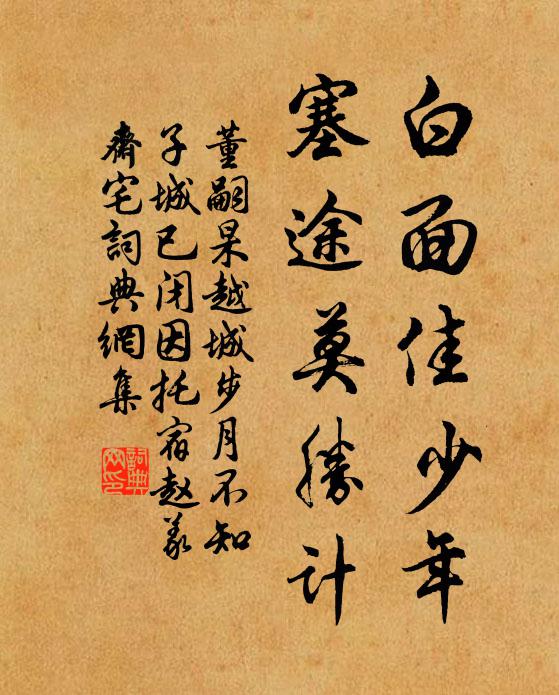 白面佳少年
塞途莫勝計
董嗣杲越城步月不知
子城已闭因托宿赵義
齋宅詞典網集
詞典網印